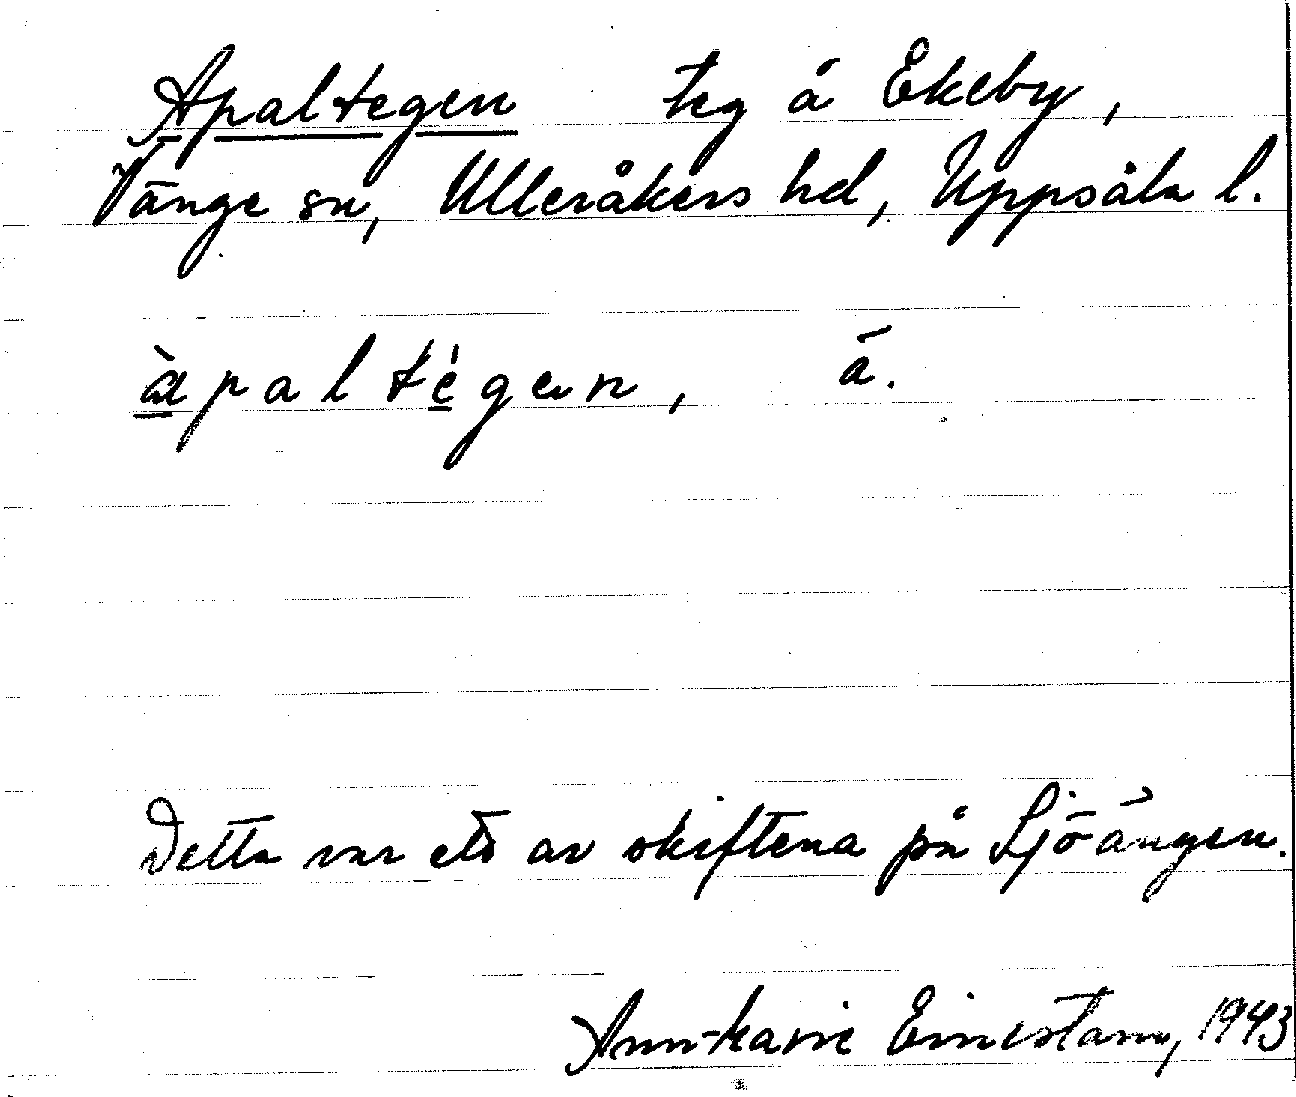 Apaltegen teg å Ekeby,
Vänge sn, Ulleråkers hd, Uppsala l.
àpaltégen, å.
Detta var ett av skiftena på Sjöängen.
Ann-karie 1943